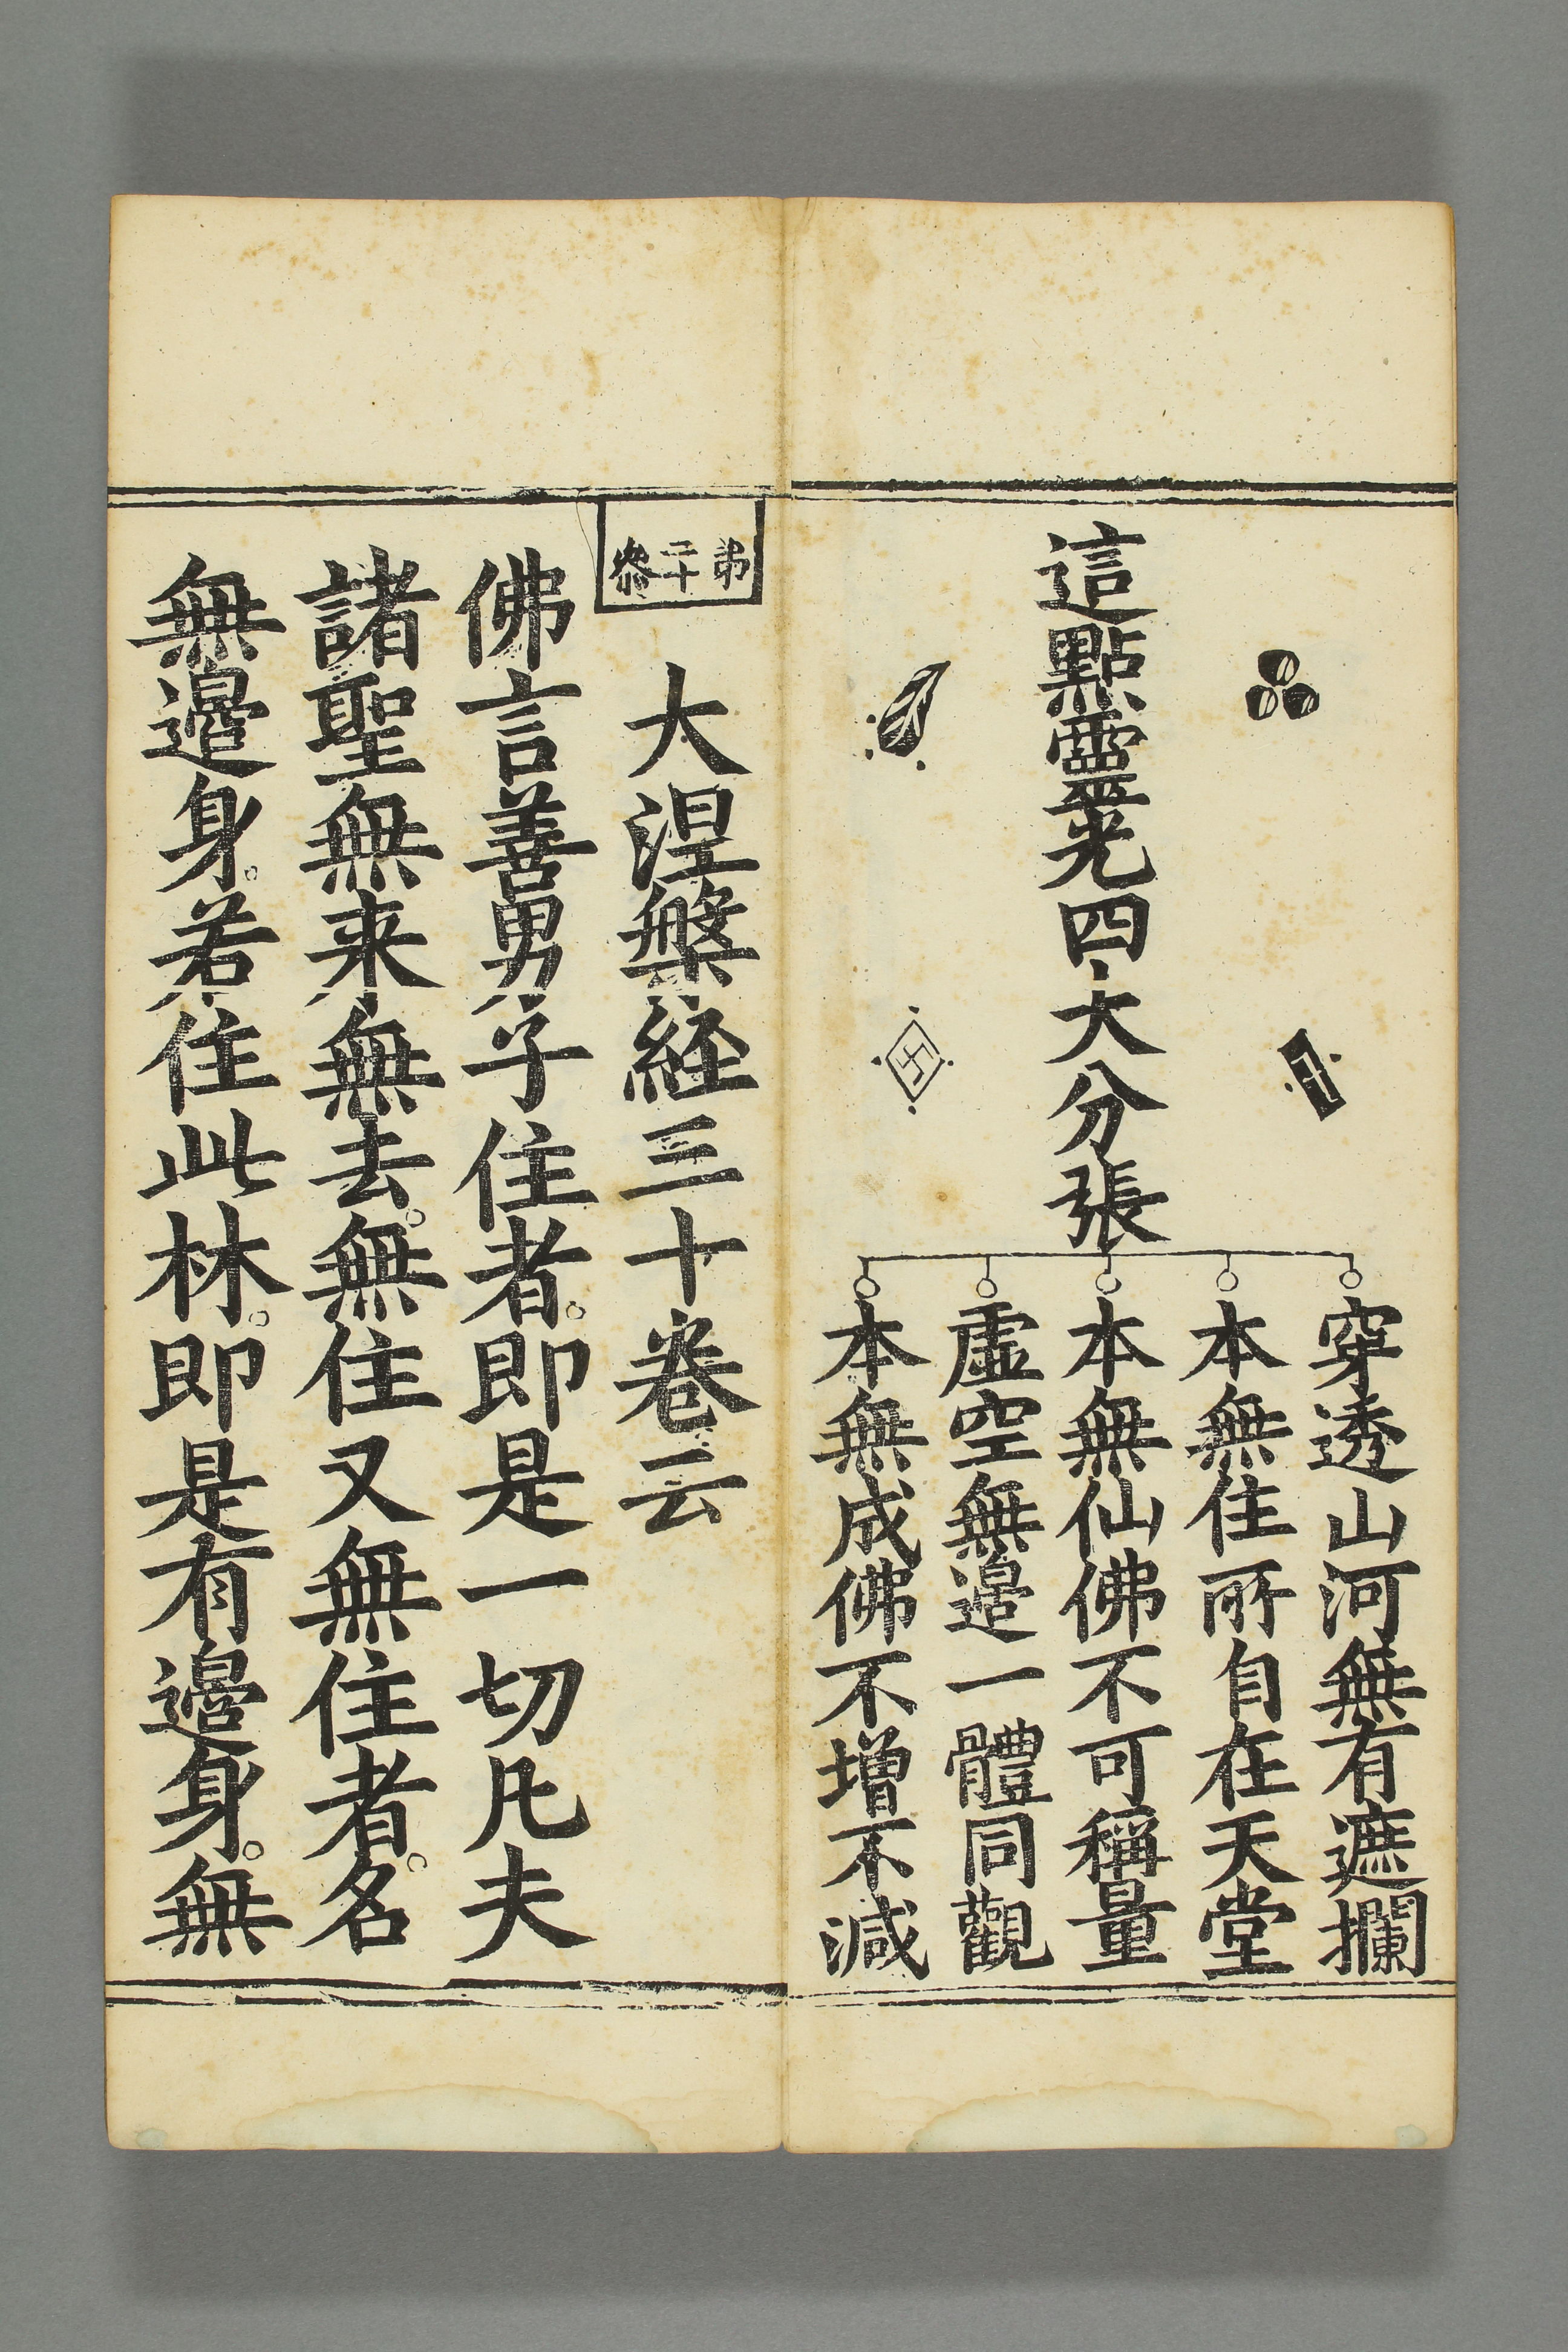 這點靈光四大分張
穿透山河無有遮攔
本無住所自在天堂
本無仙佛不可稱量
虛空無邉一體同觀
本無成佛不増不減
弟二十叅
大涅槃経三十卷云
佛言善男子住者。即是一切凡夫
諸聖無来無去。無住又無住者。名
無邉身。若住此林。即是有邉身。無